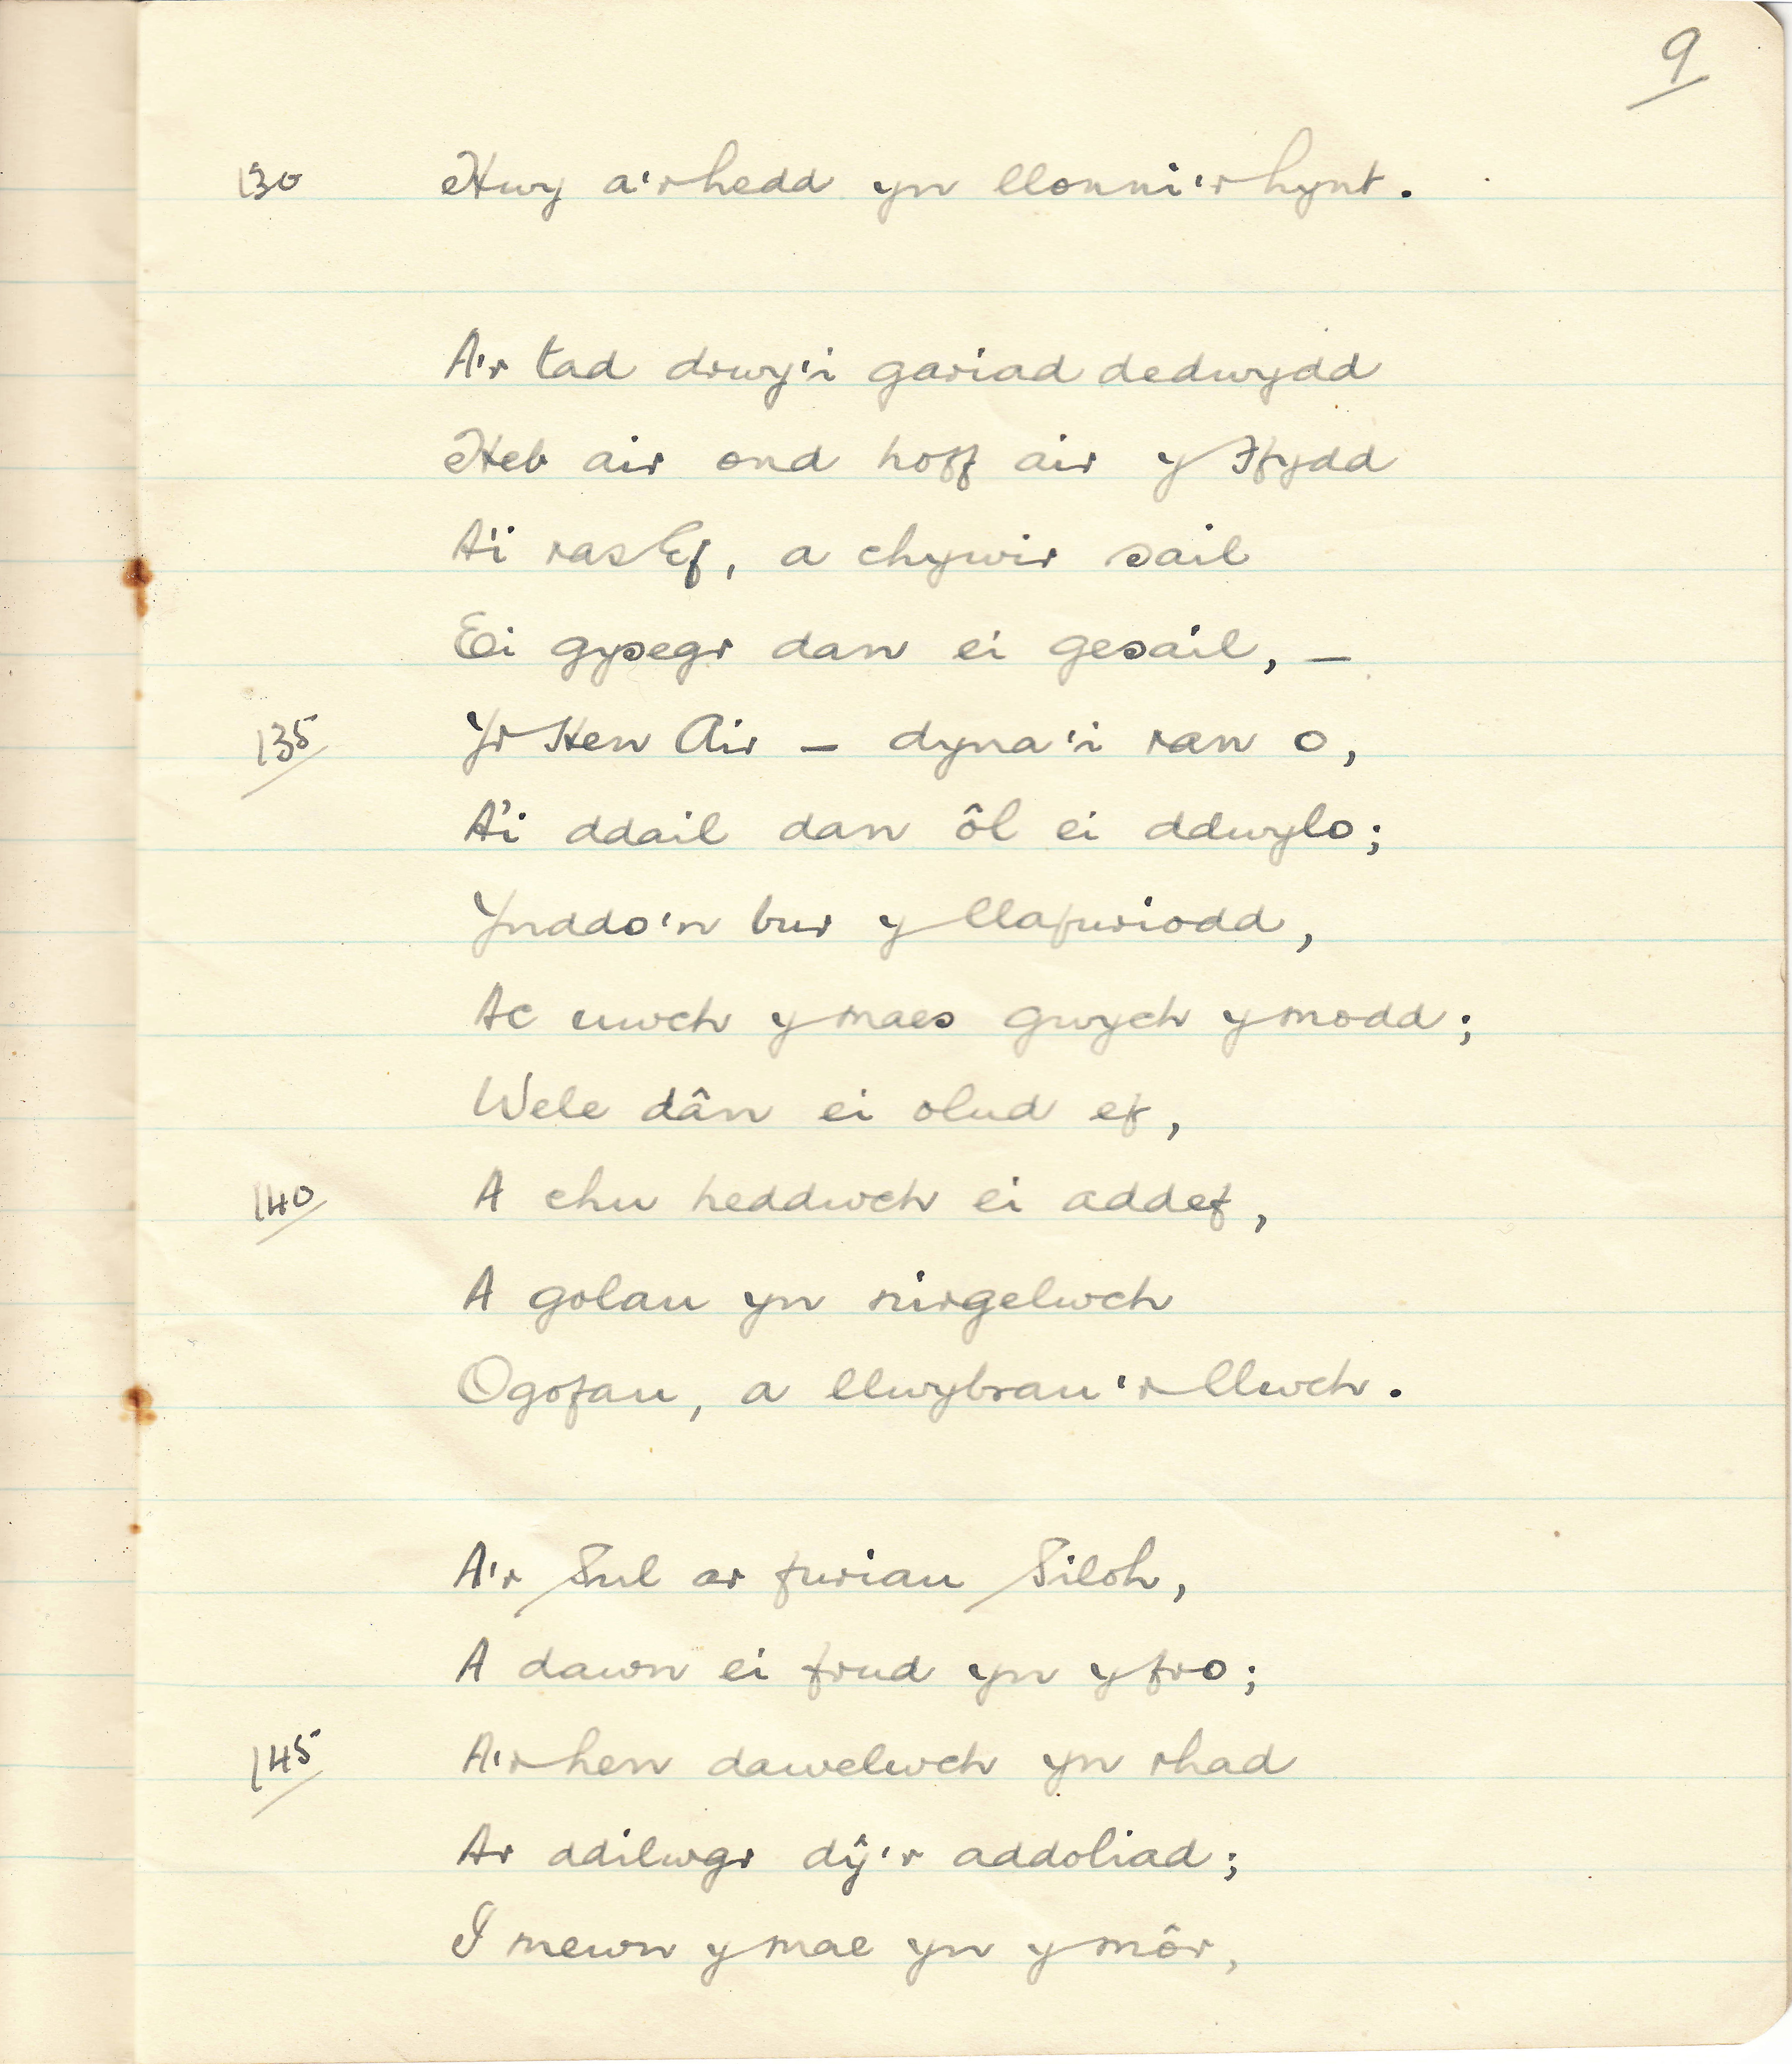 9
130 Hwy a'r hedd yn llonni'r hynt.
A'r tad drwy'i gariad dedwydd
Heb air ond hoff air y Ffydd
A'i ras Ef, a chywir sail
Ei gysegr dan ei gesail, —
135 Yr Hen Air — dyna'i ran o,
A'i ddail dan ôl ei ddwylo;
Ynddo'n bur y llafuriodd,
Ac uwch y maes gwych y modd;
Wele dân ei olud ef,
140 A chu heddwch ei addef,
A golau yn nirgelwch
Ogofau, a llwybrau'r llwch.
A'r Sul ar furiau Siloh,
A dawn ei frud yn y fro;
145 A'r hen dawelwch yn rhad
Ar ddilwgr dŷ'r addoliad;
I mewn y mae yn y môr,